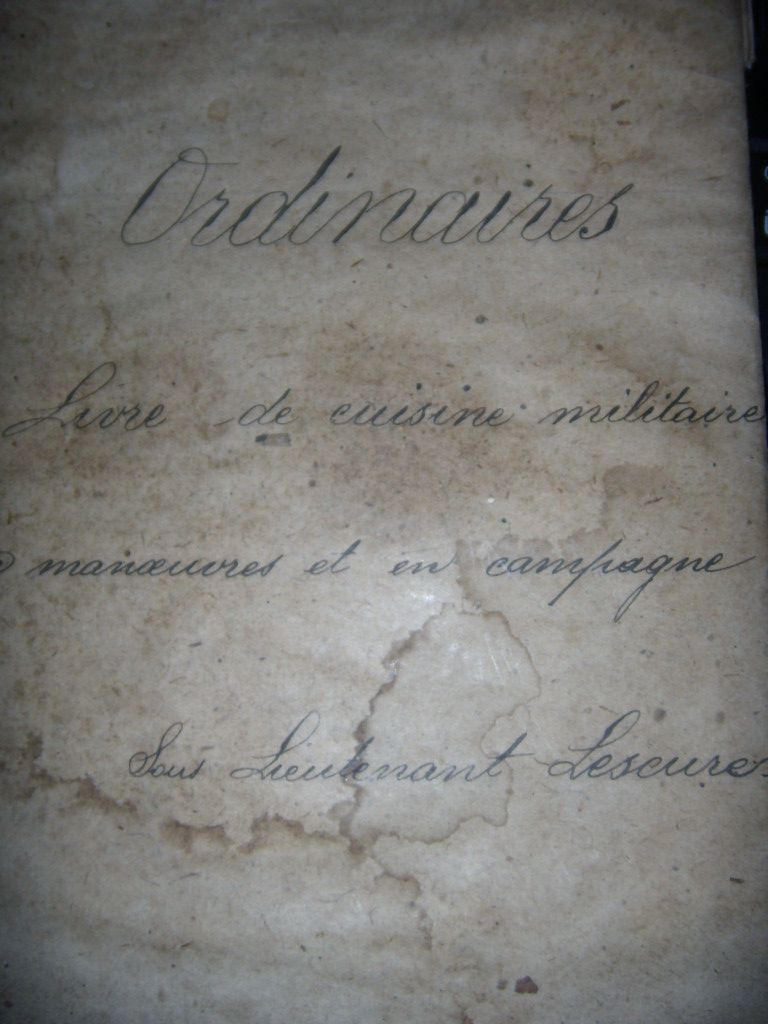 Ordinaires
Livre de cuisine militaire
manœuvres et en campagne
Sous Lieutenant Lescure